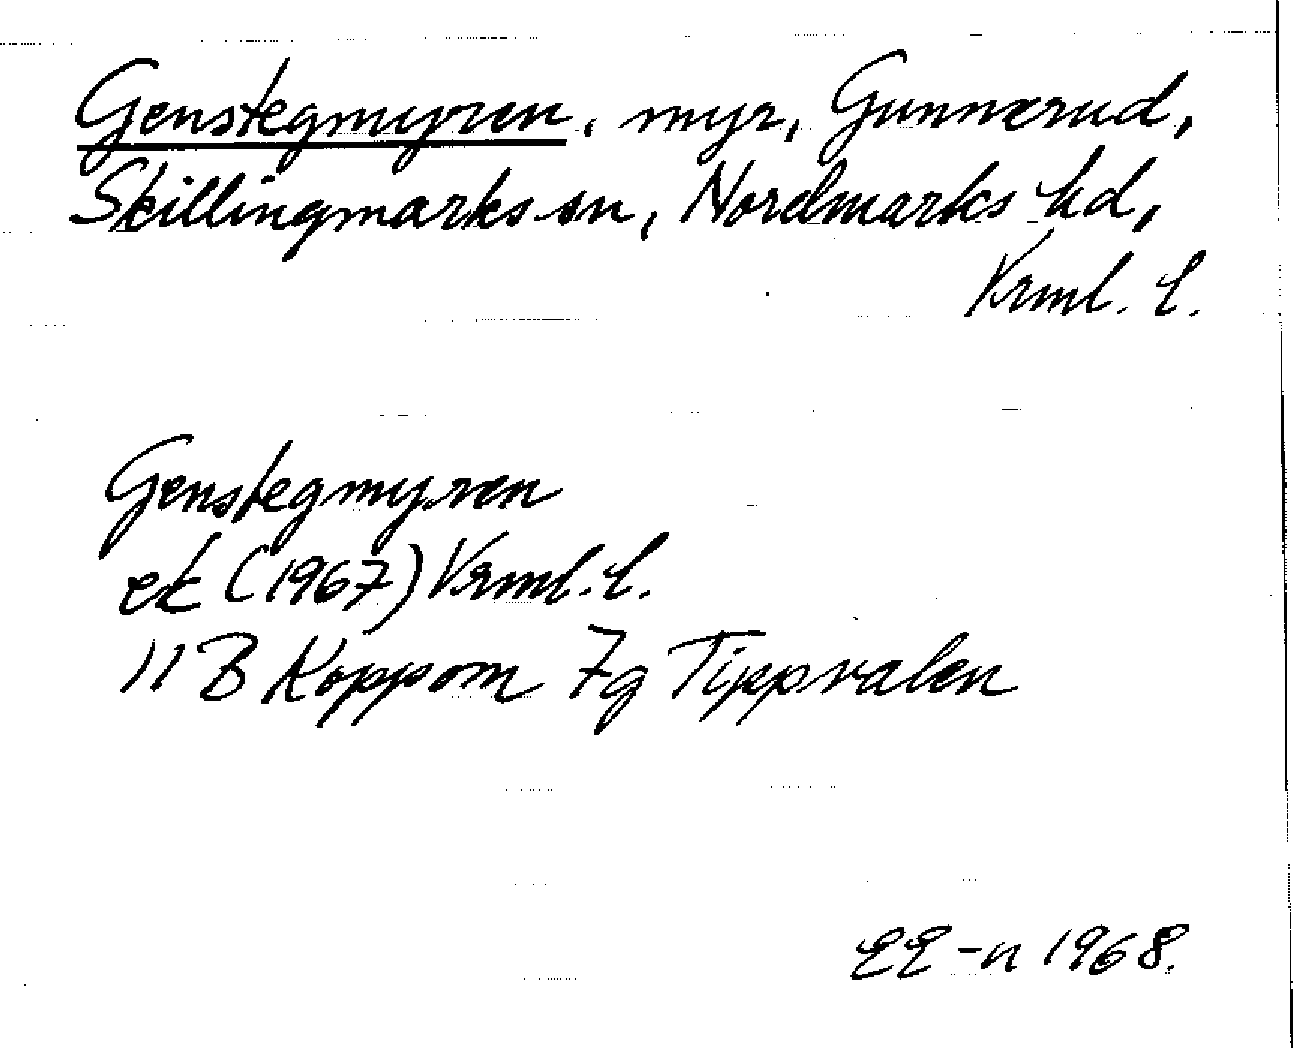 Genstegmyren, myr, Gunnerud,
Skillingmarks sn, Nordmarks hd,
Vrml. l.
Genstegmyren
ek (1967) Vrml. l.
11 B Koppom 7g Tippvalen
EE-n 1968.